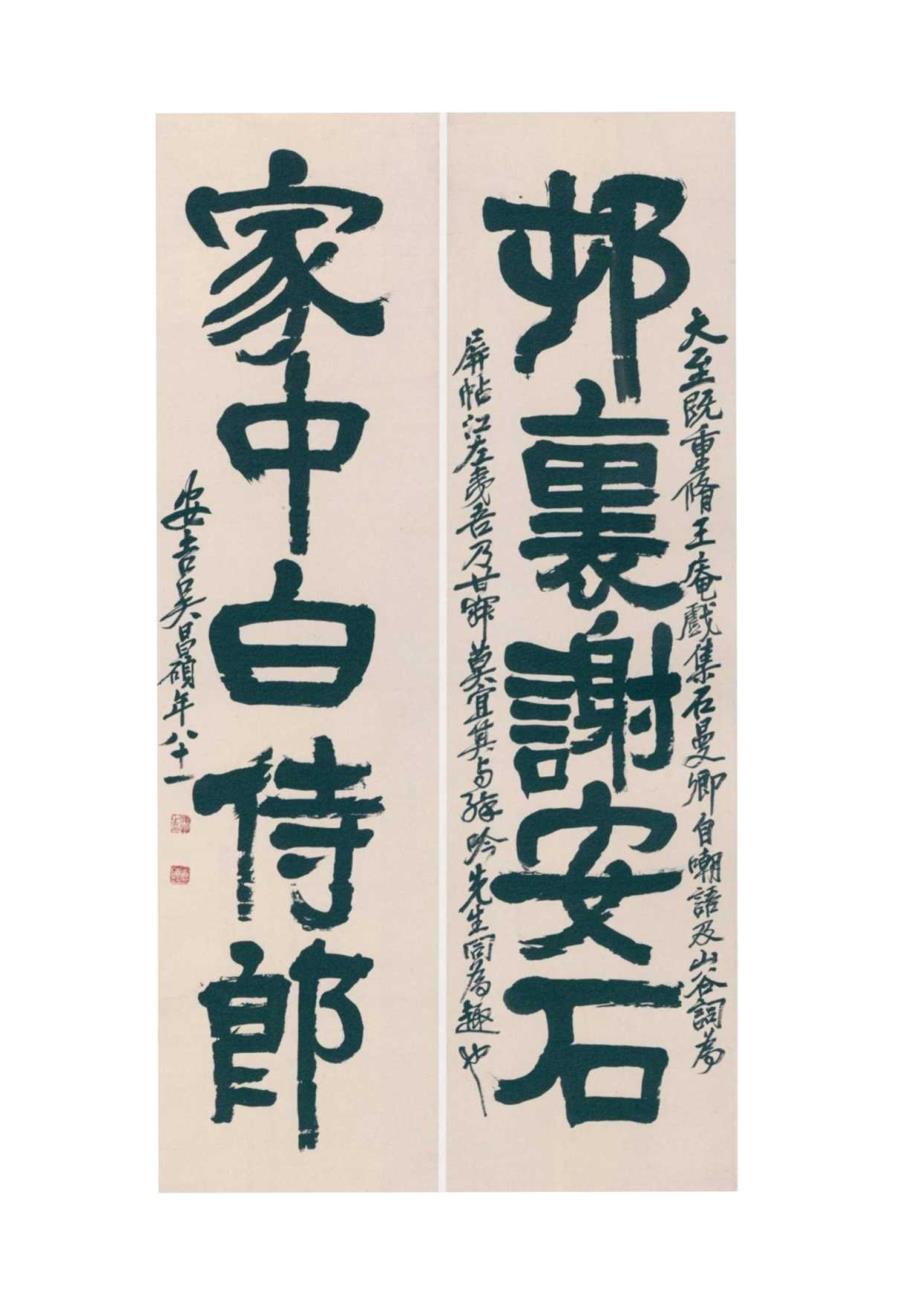 邨裏謝安石
大至既重脩王庵戲集石曼卿自嘲語及山谷詞為
屏帖江左夷吾乃甘寐莫宜其与 吟先生同為趣也
家中白侍郎
安吉吴昌碩年八十一